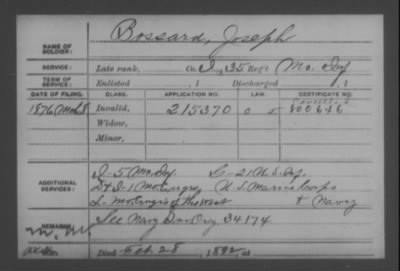 Bossard, Joseph
NAME OF SOLDIER:
SERVICE: Late rank, Co. I, 35 Reg't Mo. Inf
TERM OF SERVICE: Enlisted , 1 Discharged , 1
DATE OF FILING. CLASS. APPLICATION NO. LAW. CERTIFICATE NO.
1876 Mch 8 Invalid, 215370 800646
Widow,
Minor,
ADDITIONAL SERVICES: I-5 Mo. Inf. C-21 U.S. Inf.
D & I-1 Mo Engrs, U.S. Marine Corps
L. Mo Engrs of the West & Navy
REMARKS: See Navy Inv Orig 34174
Died Feb 28, 1892, at